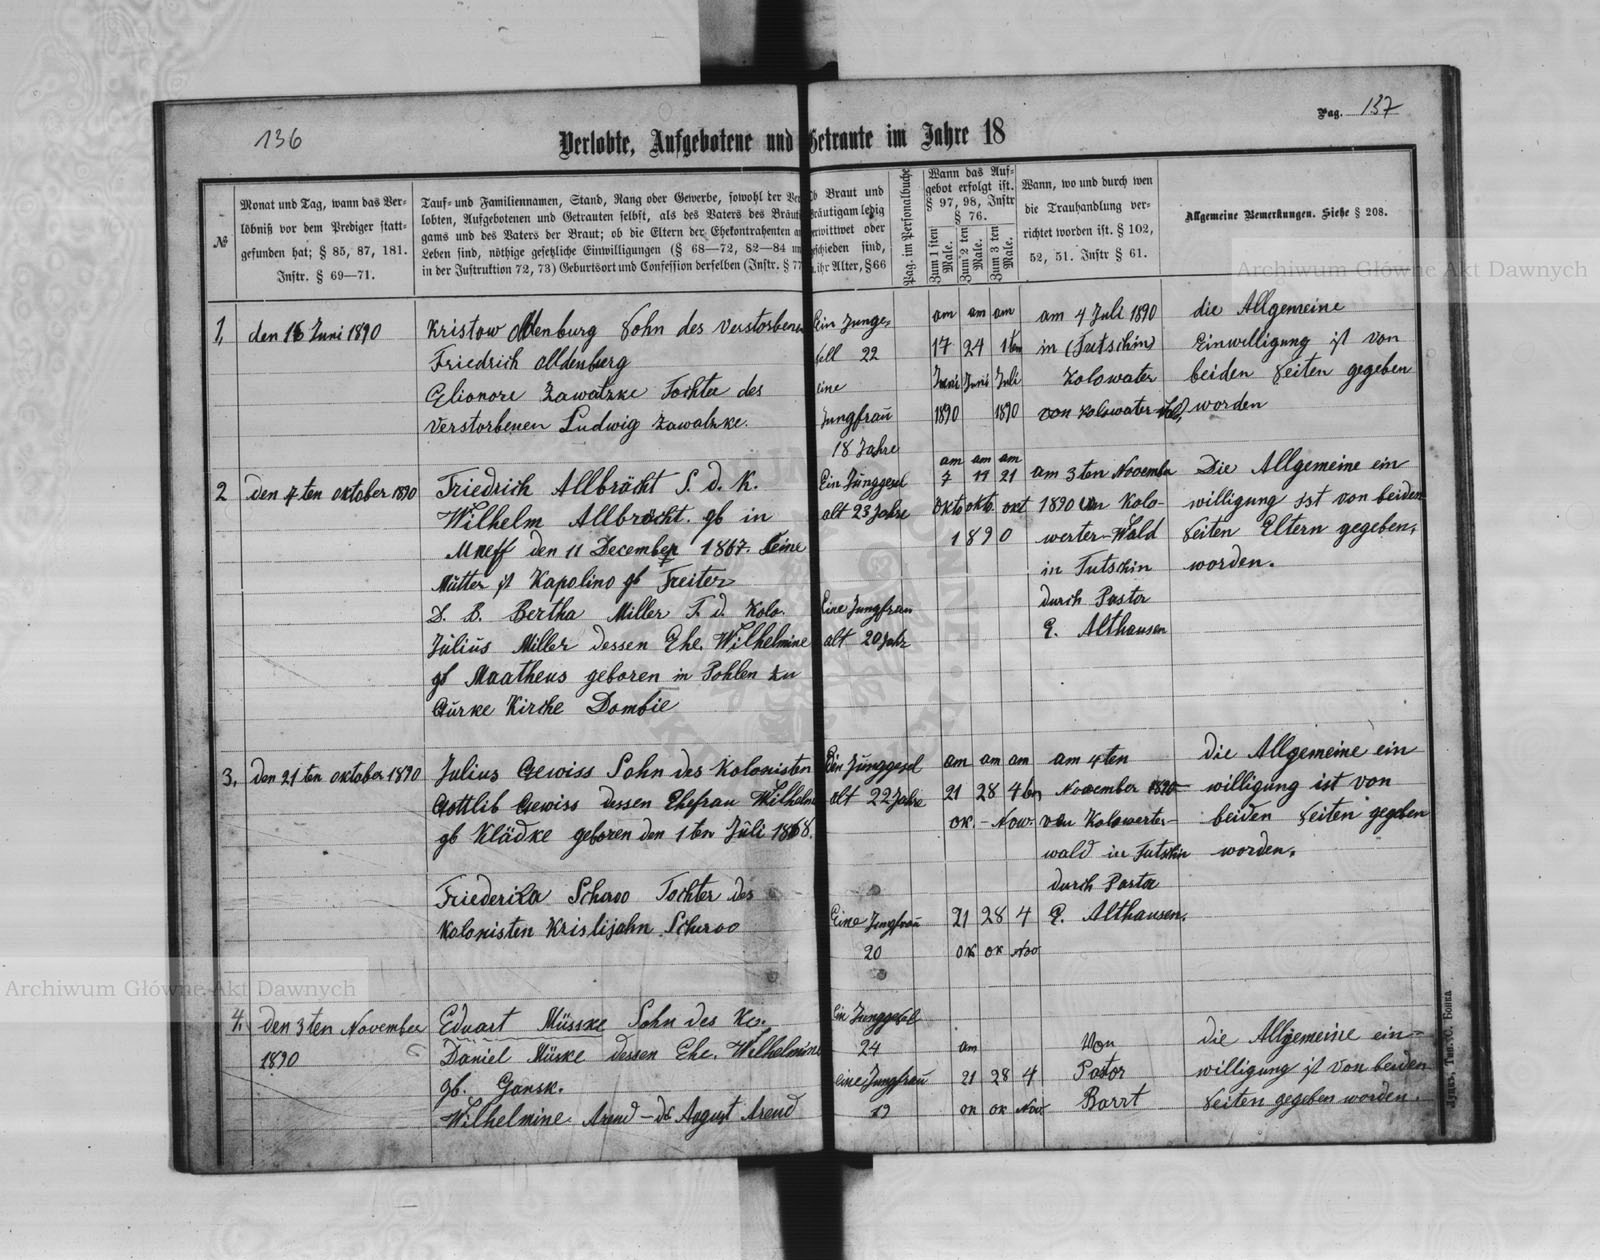 136
Pag. 137
Verlobte, Aufgebotene und Getraute im Jahre 18
№
Monat und Tag, wann das Ver-
löbniß vor dem Prediger statt-
gefunden hat; § 85, 87, 181.
Instr. § 69—71.
Tauf- und Familiennamen, Stand, Rang oder Gewerbe, sowohl der Ver
lobten, Aufgebotenen und Getrauten selbst, als des Vaters des Bräuti
gams und des Vaters der Braut; ob die Eltern der Ehekontrahenten a
Leben sind, nöthige gesetzliche Einwilligungen (§ 68—72, 82—84 un
in der Justruktion 72, 73) Geburtsort und Confession derselben (Instr. § 77
Ob Braut und
Bräutigam ledig
verwittwet oder
geschieden sind,
u. ihr Alter, § 66
Pag. im Personalbuche
Wann das Auf-
gebot erfolgt ist.
§ 97, 98, Instr
§ 76.
Zum 1 sten Male.
Zum 2 ten Male.
Zum 3 ten Male.
Wann, wo und durch wen
die Trauhandlung ver-
richtet worden ist. § 102,
52, 51. Instr § 61.
Allgemeine Bemerkungen. Siehe § 208.
1,
den 16 Juni 1890
Kristow Altenburg Sohn des verstorbenen
Friedrich Altenburg
Elionore Zawatzke Tochter des
verstorbenen Ludwig Zawatzke.
Ein Junge,
sell 22
eine
Jungfrau
18 Jahre
am am am
17 24 1ten
Juni Juni Juli
1890 1890
am 4 Juli 1890
in (Tutschin)
Kolowater
von Kolowater
die Allgemeine
Einwilligung ist von
beiden Seiten gegeben
worden
2
den 4ten oktober 1890
Friedrich Allbrächt S. d. K.
Wilhelm Allbrächt. gb in
Mneff den 11 December 1867. Seine
Mutter ist Kapolino gb Treiter
D. B. Bertha Miller T. d. Kolo.
Julius Miller dessen Ehe. Wilhelmine
gb Maatheus geboren in Pohlen zu
Gurke Kirche Dombie
Ein Junggesel
alt 23 Jahre
Eine Jungfrau
alt 20 Jahr
am am am
7 14 21
okto okto. okt
1890
am 3ten Novembr
1890 von Kolo-
werter-Wald
in Tutschin
durch Pastor
E. Althausen
Die Allgemeine ein
willigung ist von beiden
Seiten Eltern gegeben,
worden.
3.
den 21ten oktober 1890
Julius Gewiss Sohn des Kolonisten
Gottlib Gewiss dessen Ehefrau Wilhelm
gb Klädke geboren den 1ten Juli 1868.
Friederika Scheroo Tochter des
Kolonisten Kristijahn Scheroo
Ein Junggesel
alt 22 Jahre
Eine Jungfrau
20
am am am
21 28 4ten
ok. - Now.
21 28 4
ok ok Noo
am 4ten
November 1890
von Kolowerter-
wald in Tutschin
durch Pastor
E. Althausen.
die Allgemeine ein
willigung ist von
beiden Seiten gegeben
worden.
4.
den 3ten November
1890
Eduart Müsske Sohn des Ko.
Daniel Müske dessen Ehe. Wilhelmine
gb. Gansk.
Wilhelmine Arend – d August Arend
Ein Junggesel
24
eine Jungfrau
19
am
21 28 4
ok ok Nov.
Von
Pastor
Barrt
die Allgemeine ein-
willigung ist von beiden
Seiten gegeben worden.
Archiwum Główne Akt Dawnych
Archiwum Główne Akt Dawnych